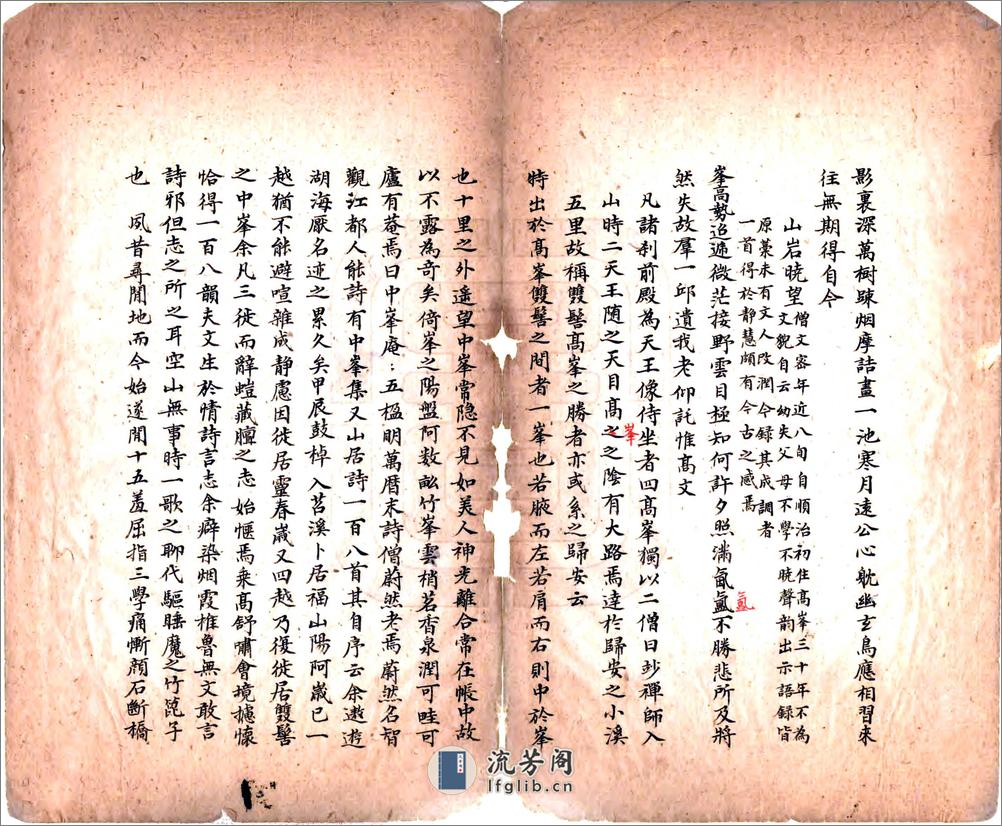 影裏深萬樹疎烟摩詰畫一池寒月遠公心耽幽玄鳥應相習來
往無期得自今
山岩曉望
僧文容年近八旬自順治初住高峯三十年不為
文貌自云幼失父母不學不曉聲韵出示語録皆
原藁未有文人改潤今録其成調者
一首得於静慧頗有今古之感焉
峯高勢迢遞微茫接野雲目極知何許夕照滿氤氳不勝悲所及將
氳
然失故羣一邱遺我老仰託惟髙文
凡諸刹前殿為天王像侍坐者四髙峯獨以二僧曰玅禪師入
山時二天王随之天目髙之之陰有大路焉達於歸安之小溪
峯
五里故稱雙髻髙峯之勝者亦或系之歸安云
特出於髙峯雙髻之間者一峯也若腋而左若肩而右則中於峯
也十里之外遥望中峯常隐不見如美人神光離合常在帳中故
以不露為奇矣倚峯之陽盤阿数畝竹峯雲梢茗香泉潤可畦可
廬有菴焉曰中峯庵：五楹明萬曆末詩僧蔚然老焉蔚然名智
觀江都人能詩有中峯集又山居詩一百八首其自序云余遨遊
湖海厭名迹之累久矣甲辰鼓棹入苕溪卜居福山陽阿歲已一
越猶不能避喧雜成静慮因徙居靈春歲又四越乃復徙居雙髻
之中峯余凡三徙而辭螘藏膻之志始愜焉乘髙舒嘯會境攄懷
恰得一百八韻夫文生於情詩言志余癖染烟霞椎魯無文敢言
詩邪但志之所之耳空山無事時一歌之聊代驅睡魔之竹箆子
也　夙昔尋聞地而今始遂聞十五羞屈指三學痛慚顔石斷橋
流芳阁
lfglib.cn